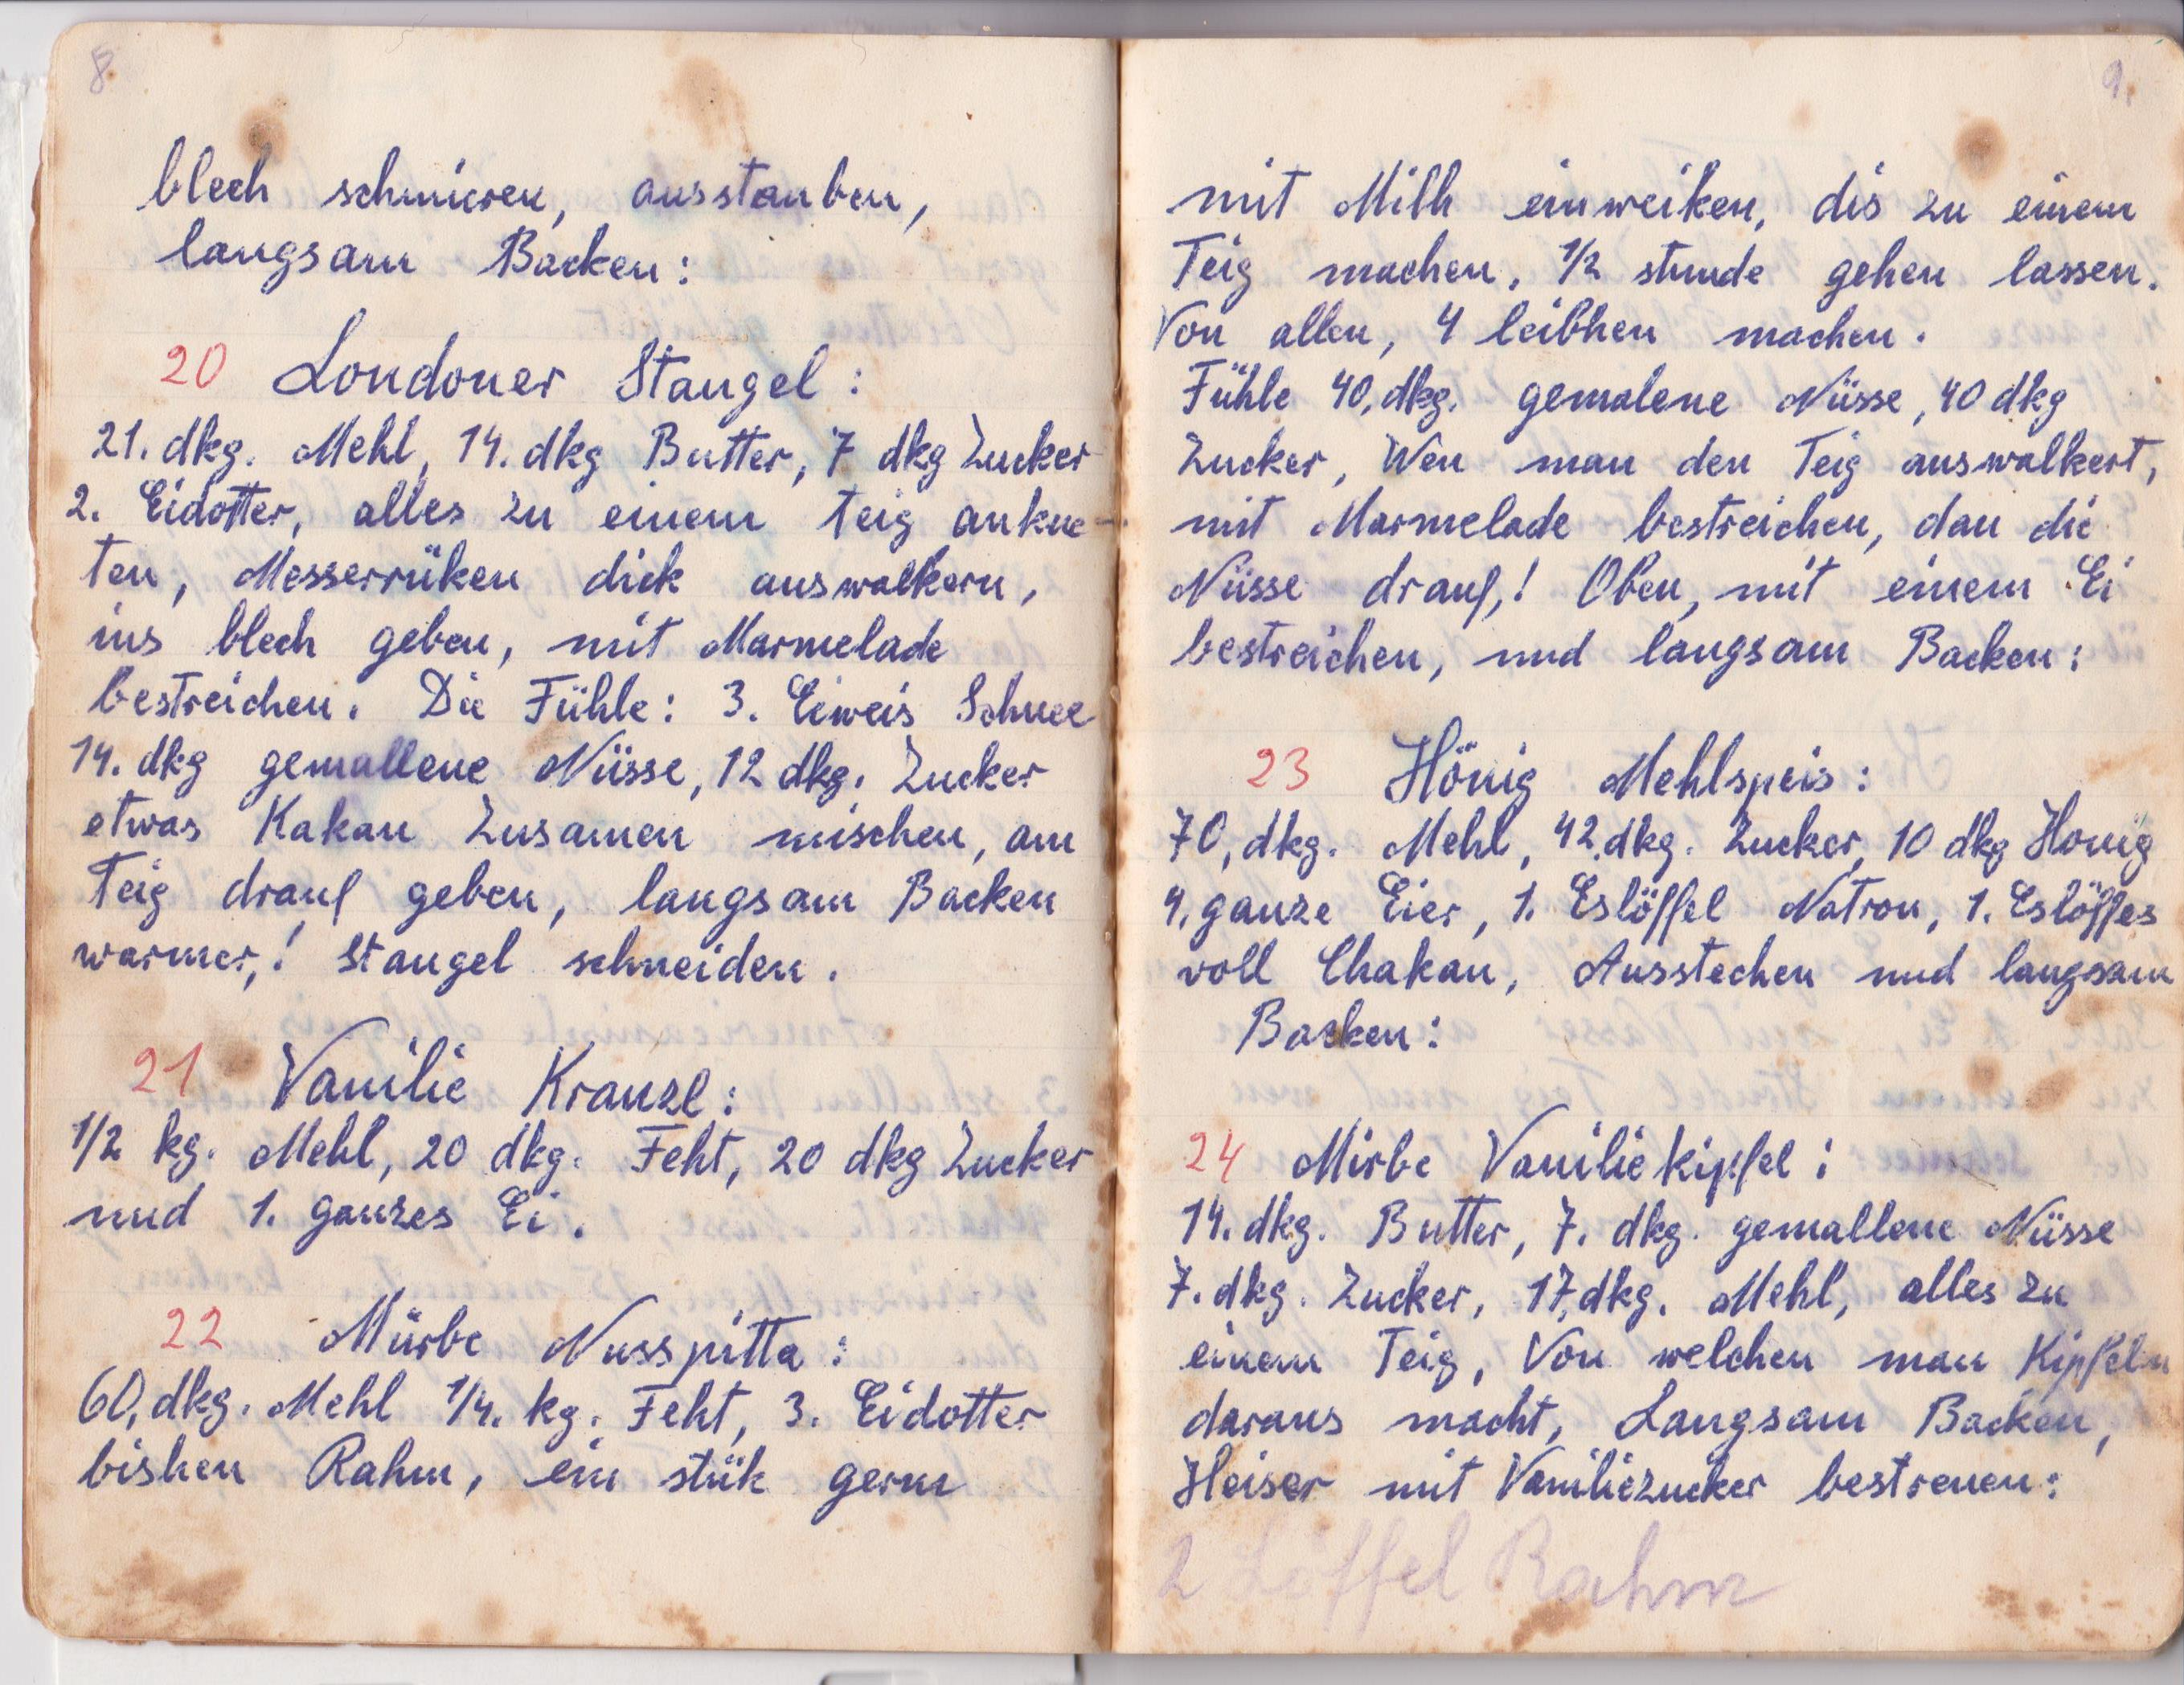 8.
blech schmieren, ausstauben,
langsam Backen:
20 Londoner Stangel:
21. dkg. Mehl, 14. dkg Butter, 7 dkg Zucker
2. Eidotter, alles zu einem teig ankne-
ten, Messerrüken dick auswalkern,
ins blech geben, mit Marmelade
bestreichen. Die Fühle: 3. Eiweis Schnee
14. dkg gemallene Nüsse, 12 dkg. Zucker
etwas Kakau Zusamen mischen, am
Teig drauf geben, langsam Backen
warmer,! stangel schneiden.
21 Vanilie Kranzl:
1/2 kg. Mehl, 20 dkg. Feht, 20 dkg Zucker
und 1. ganzes Ei.
22 Mürbe Nusspitta:
60, dkg. Mehl 1/4. kg. Feht, 3. Eidotter
bishen Rahm, ein stük germ
9.
mit Milh einweiken, dis zu einem
Teig machen, 1/2 stunde gehen lassen.
Von allen, 4 leibhen machen.
Fühle 40, dkg. gemalene Nüsse, 40 dkg
Zucker, Wen man den Teig auswalkert,
mit Marmelade bestreichen, dan die
Nüsse drauf,! Oben, mit einem Ei
bestreichen, und langsam Backen:
23 Hönig Mehlspeis:
70, dkg. Mehl, 42. dkg. Zucker, 10 dkg Honig
4. ganze Eier, 1. Eslöffel Natron, 1. Eslöffes
voll Chakau, Ausstechen und langsam
Backen:
24 Mirbe Vaniliekipfel:
14. dkg. Butter, 7. dkg. gemallene Nüsse
7. dkg. Zucker, 17, dkg. Mehl, alles zu
einem Teig, Von welchen man Kipfeln
daraus macht, Langsam Backen,
Heiser mit Vaniliezucker bestreuen:
2 Löffel Rahm